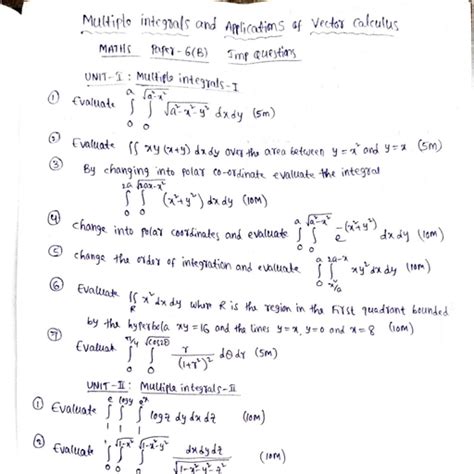 Multiple integrals and Applications of Vector Calculus
MATHS Paper-6(B) Imp Questions
UNIT-I : Multiple integrals-I
① Evaluate ∫₀ᵃ ∫₀^√(a²-x²) √(a²-x²-y²) dx dy (5m)
② Evaluate ∬ xy (x+y) dx dy over the area between y=x² and y=x (5m)
③ By changing into polar co-ordinate evaluate the integral
∫₀^2a ∫₀^√(2ax-x²) (x²+y²) dx dy (10M)
④ change into polar coordinates and evaluate ∫₀ᵃ ∫₀^√(a²-x²) e^-(x²+y²) dx dy (10m)
⑤ change the order of integration and evaluate ∫₀ᵃ ∫_x²/a^2a-x xy² dy dx (10m)
⑥ Evaluate ∬_R x² dx dy where R is the region in the First quadrant bounded
by the hyperbola xy=16 and the lines y=x, y=0 and x=8 (10M)
⑦ Evaluate ∫₀^π/4 ∫₀^√(cos2θ) r/(1+r²)² dθ dr (5m)
UNIT-II : Multiple integrals-II
① Evaluate ∫₁^e ∫₁^logy ∫₁^eˣ log z dy dx dz (10M)
② Evaluate ∫₀^1 ∫₀^√(1-x²) ∫₀^√(1-x²-y²) dx dy dz/√(1-x²-y²-z²) (10m)